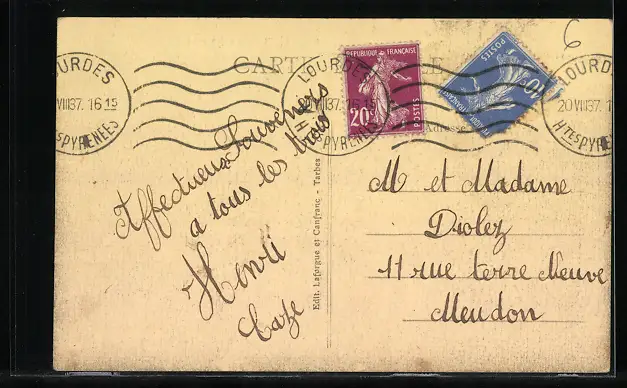 6
CARTE POSTALE
LOURDES
VIII37. 16 15
HTES PYRENEES
LOURDES
VIII37. 16 15
HTES PYRENEES
LOURDES
20 VIII37. 1
HTES PYRENEES
REPUBLIQUE FRANÇAISE
20c
POSTES
POSTES
10
Adresse
Affectueux Souvenirs
a tous les trois
Henri
Caze
Edit. Laforgue et Canfranc - Tarbes
M et Madame
Diolez
11 rue terre Neuve
Meudon